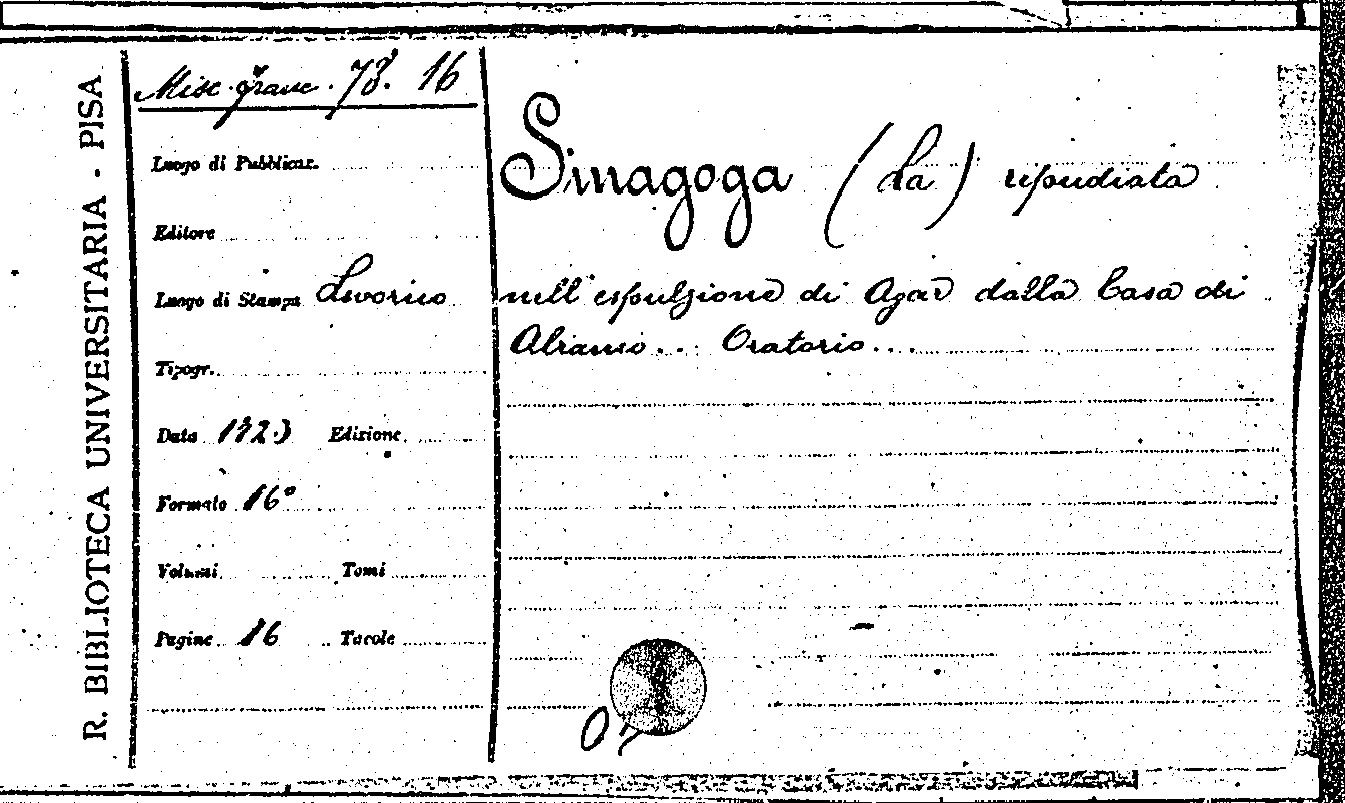 R. BIBLIOTECA UNIVERSITARIA - PISA
Misc. grave. 78. 16
Luogo di Pubblicaz.
Editore
Luogo di Stampa Livorno
Tipogr.
Data 1723 Edizione
Formato 16°
Volumi Tomi
Pagine 16 Tavole
Sinagoga (La) ripudiata
nell'espulsione di Agar dalla Casa di
Abramo... Oratorio...